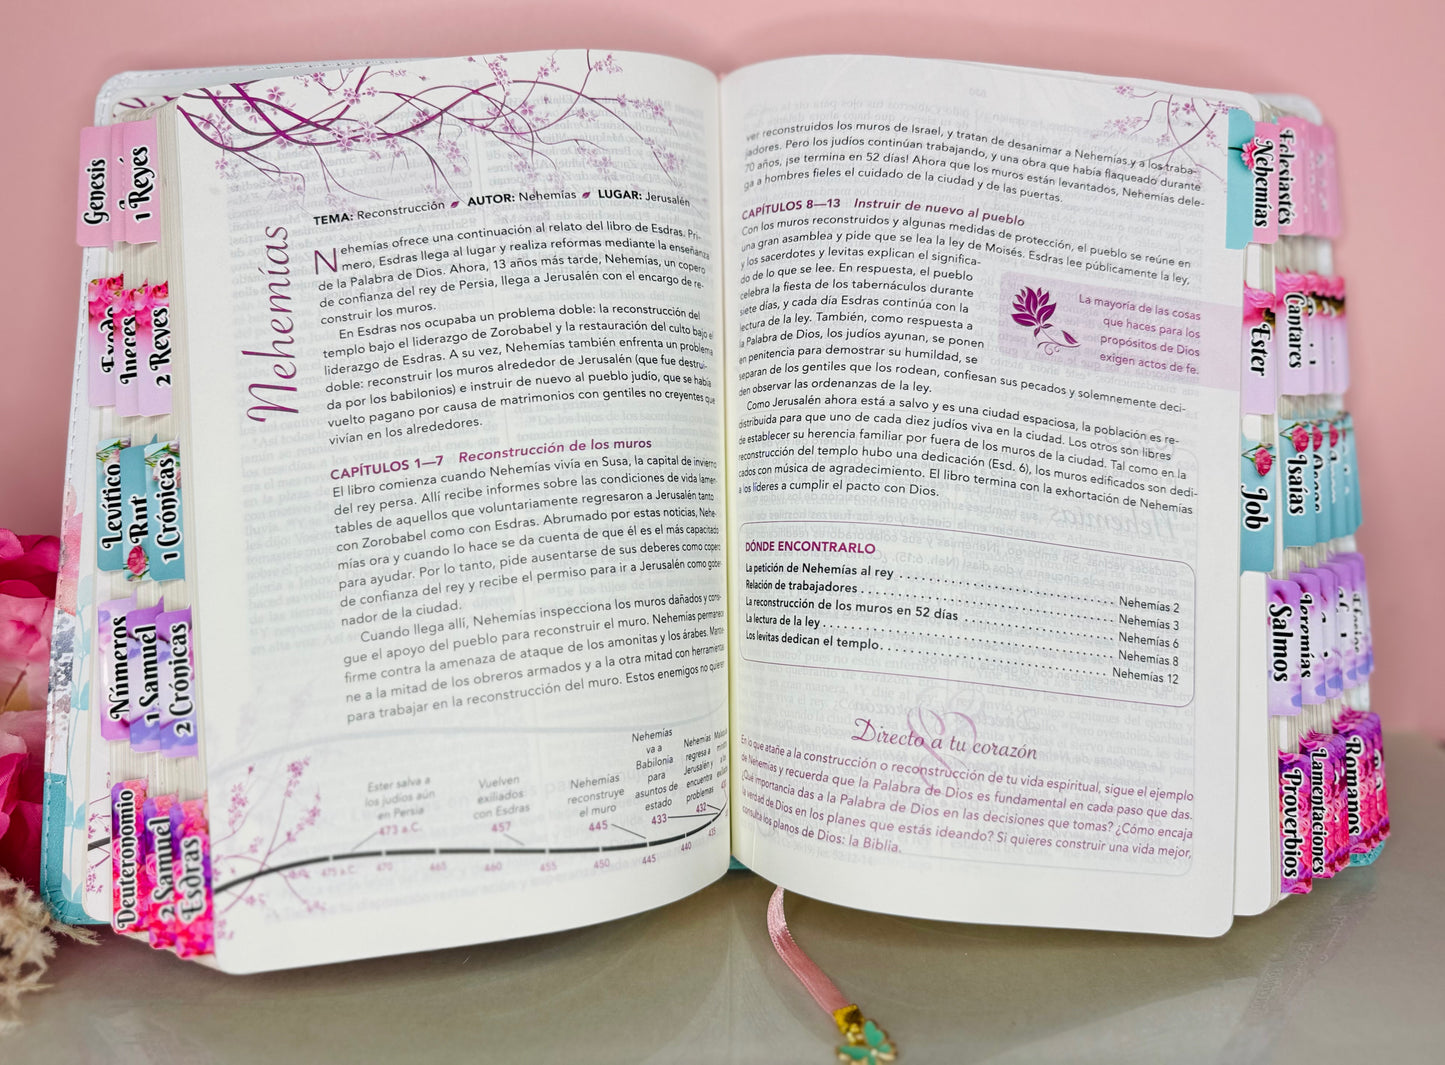 Nehemías
TEMA: Reconstrucción AUTOR: Nehemías LUGAR: Jerusalén
Nehemías ofrece una continuación al relato del libro de Esdras. Pri-
mero, Esdras llega al lugar y realiza reformas mediante la enseñanza
de la Palabra de Dios. Ahora, 13 años más tarde, Nehemías, un copero
de confianza del rey de Persia, llega a Jerusalén con el encargo de re-
construir los muros.
En Esdras nos ocupaba un problema doble: la reconstrucción del
templo bajo el liderazgo de Zorobabel y la restauración del culto bajo el
liderazgo de Esdras. A su vez, Nehemías también enfrenta un problema
doble: reconstruir los muros alrededor de Jerusalén (que fue destrui-
da por los babilonios) e instruir de nuevo al pueblo judío, que se había
vuelto pagano por causa de matrimonios con gentiles no creyentes que
vivían en los alrededores.
CAPÍTULOS 1—7 Reconstrucción de los muros
El libro comienza cuando Nehemías vivía en Susa, la capital de invierno
del rey persa. Allí recibe informes sobre las condiciones de vida lamen-
tables de aquellos que voluntariamente regresaron a Jerusalén tanto
con Zorobabel como con Esdras. Abrumado por estas noticias, Nehe-
mías ora y cuando lo hace se da cuenta de que él es el más capacitado
para ayudar. Por lo tanto, pide ausentarse de sus deberes como copero
de confianza del rey y recibe el permiso para ir a Jerusalén como gober-
nador de la ciudad.
Cuando llega allí, Nehemías inspecciona los muros dañados y consi-
gue el apoyo del pueblo para reconstruir el muro. Nehemías permanece
firme contra la amenaza de ataque de los amonitas y los árabes. Mantie-
ne a la mitad de los obreros armados y a la otra mitad con herramientas
para trabajar en la reconstrucción del muro. Estos enemigos no quieren
Ester salva a
los judíos aún
en Persia
473 a.C.
Vuelven
exiliados
con Esdras
457
Nehemías
reconstruye
el muro
445
Nehemías
va a
Babilonia
para
asuntos de
estado
433
Nehemías
regresa a
Jerusalén y
encuentra
problemas
432
475 a.C. 470 465 460 455 450 445 440 435
ver reconstruidos los muros de Israel, y tratan de desanimar a Nehemías y a los traba-
jadores. Pero los judíos continúan trabajando, y una obra que había flaqueado durante
70 años, ¡se termina en 52 días! Ahora que los muros están levantados, Nehemías dele-
ga a hombres fieles el cuidado de la ciudad y de las puertas.
CAPÍTULOS 8—13 Instruir de nuevo al pueblo
Con los muros reconstruidos y algunas medidas de protección, el pueblo se reúne en
una gran asamblea y pide que se lea la ley de Moisés. Esdras lee públicamente la ley,
y los sacerdotes y levitas explican el significa-
do de lo que se lee. En respuesta, el pueblo
celebra la fiesta de los tabernáculos durante
siete días, y cada día Esdras continúa con la
lectura de la ley. También, como respuesta a
la Palabra de Dios, los judíos ayunan, se ponen
en penitencia para demostrar su humildad, se
separan de los gentiles que los rodean, confiesan sus pecados y solemnemente deci-
den observar las ordenanzas de la ley.
La mayoría de las cosas
que haces para los
propósitos de Dios
exigen actos de fe.
Como Jerusalén ahora está a salvo y es una ciudad espaciosa, la población es re-
distribuida para que uno de cada diez judíos viva en la ciudad. Los otros son libres
de establecer su herencia familiar por fuera de los muros de la ciudad. Tal como en la
reconstrucción del templo hubo una dedicación (Esd. 6), los muros edificados son dedi-
cados con música de agradecimiento. El libro termina con la exhortación de Nehemías
a los líderes a cumplir el pacto con Dios.
DÓNDE ENCONTRARLO
La petición de Nehemías al rey . . . . . . . . . . Nehemías 2
Relación de trabajadores . . . . . . . . . . Nehemías 3
La reconstrucción de los muros en 52 días . . . . . . . . . . Nehemías 6
La lectura de la ley . . . . . . . . . . Nehemías 8
Los levitas dedican el templo. . . . . . . . . . Nehemías 12
Directo a tu corazón
En lo que atañe a la construcción o reconstrucción de tu vida espiritual, sigue el ejemplo
de Nehemías y recuerda que la Palabra de Dios es fundamental en cada paso que das.
¿Qué importancia das a la Palabra de Dios en las decisiones que tomas? ¿Cómo encaja
la verdad de Dios en los planes que estás ideando? Si quieres construir una vida mejor,
consulta los planos de Dios: la Biblia.
Genesis
1 Reyes
Exodo
Jueces
2 Reyes
Levítico
Rut
1 Crónicas
Números
1 Samuel
2 Crónicas
Deuteronomio
2 Samuel
Esdras
Nehemias
Eclesiastés
Ester
Cantares
Job
Isaías
Salmos
Jeremías
Proverbios
Lamentaciones
Romanos